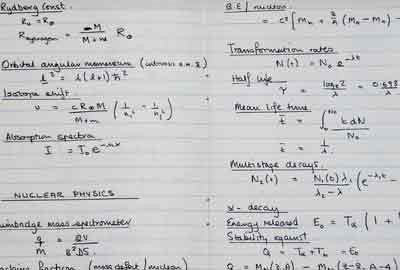 Rydberg Const.
R₀ = R∞
R hydrogen = M / M + m R∞
Orbital angular momentum
l² = l(l+1)ħ²
Isotope shift.
υ = cR∞M / M+m (1/n₁² - 1/n₂²)
Absorption spectra
I = I₀e
NUCLEAR PHYSICS
mass spectrometer
q/m =
fraction (mass defect / nucleon)
B.E / nucleon
= c² [Mₙ +
Transformation rates
N(t) = N₀ e^-λt
Half life
τ = log_e 2 / λ = 0.693
Mean life time
t̄ = ∫ t dN / N₀
t̄ = 1/λ
Multistage decays.
N₂(t) = N₁(0) λ₁ / λ₂ - λ₁ (e^-λ₁t -
α - decay
Energy released E₀ = Tα (1 +
Stability against
Q = Tα + = E₀
Q =